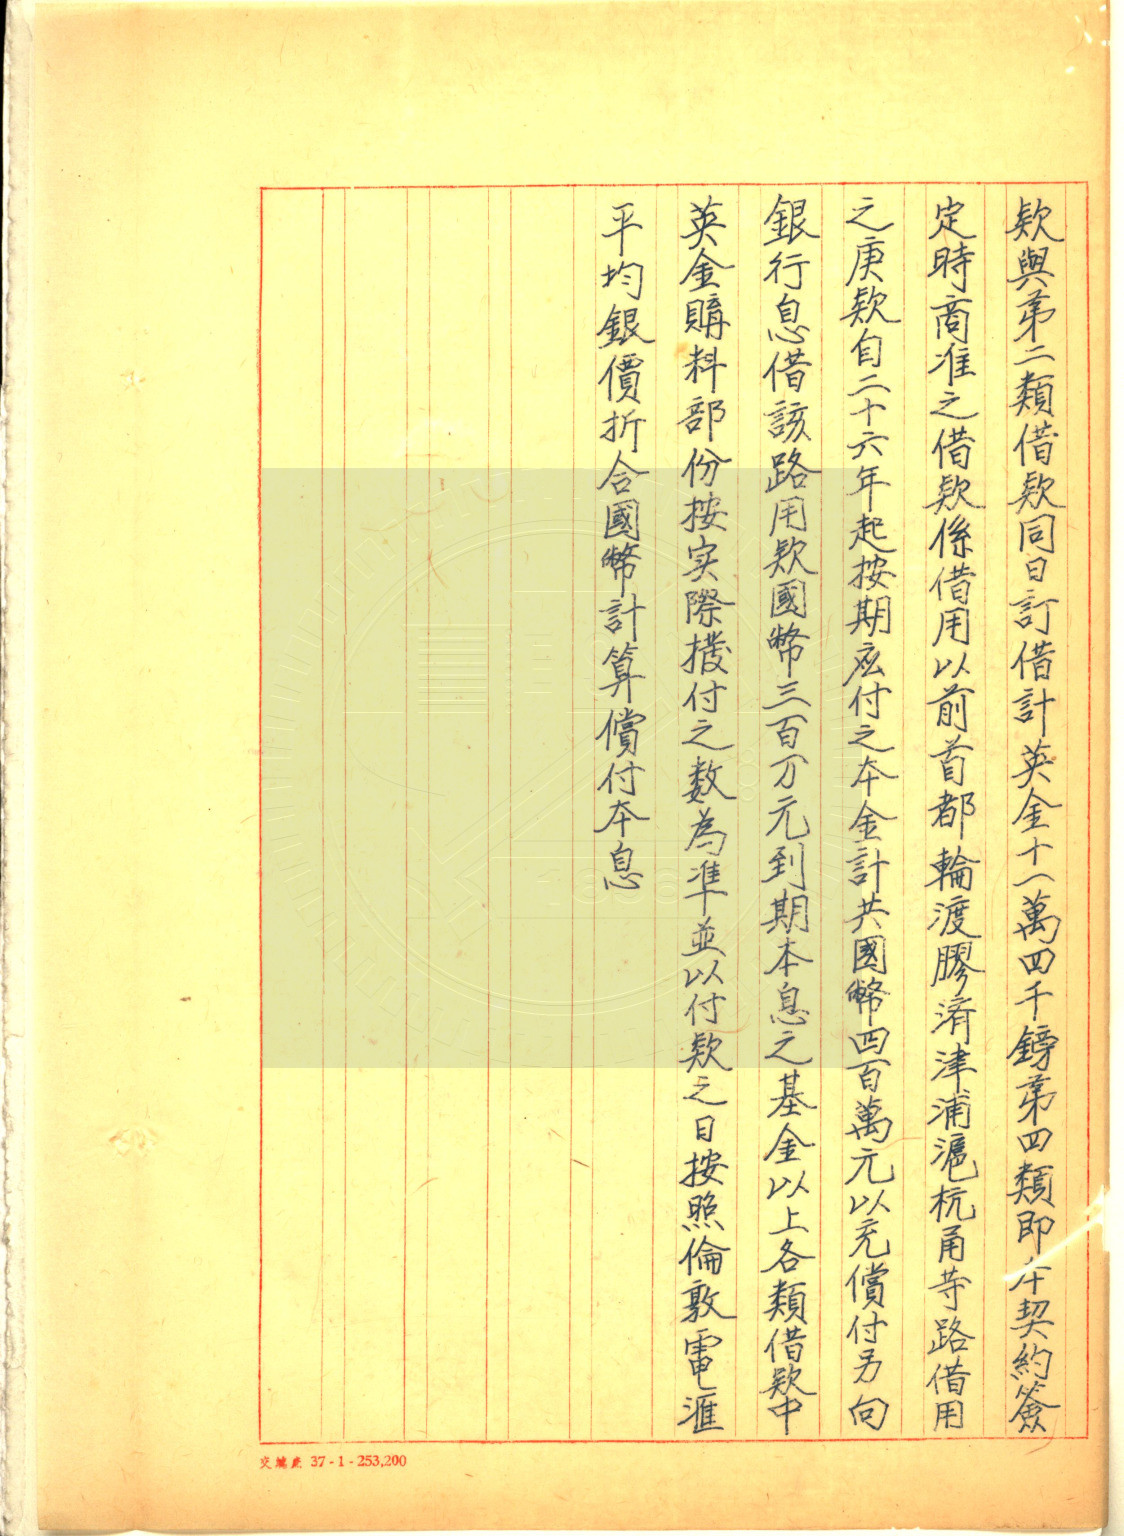 欵與第二類借欵同日訂借計英金十一萬四千鎊第四類即本契約簽
定時商准之借欵係借用以前首都輪渡膠済津浦滬杭甬等路借用
之庚欵自二十六年起按期应付之本金計共國幣四百萬元以充償付另向
銀行息借該路用欵國幣三百万元到期本息之基金以上各類借欵中
英金購料部份按实際撥付之数為準並以付欵之日按照倫敦電滙
平均銀價折合國幣計算償付本息
37-1-253,200